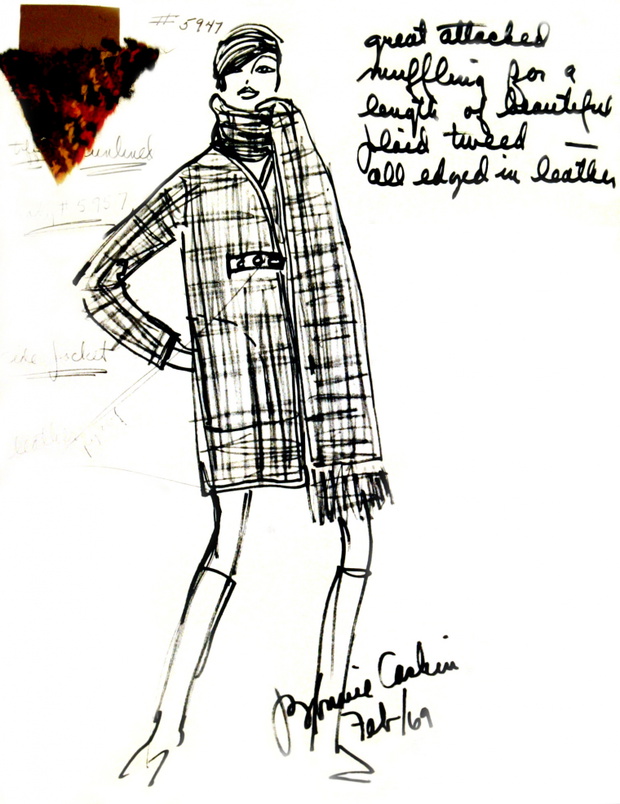 # 5947
great attached
muffling for a
length of beautiful
plaid tweed —
all edged in leather
unlined
# 5957
the jacket
Bonnie Cashin
Feb/69